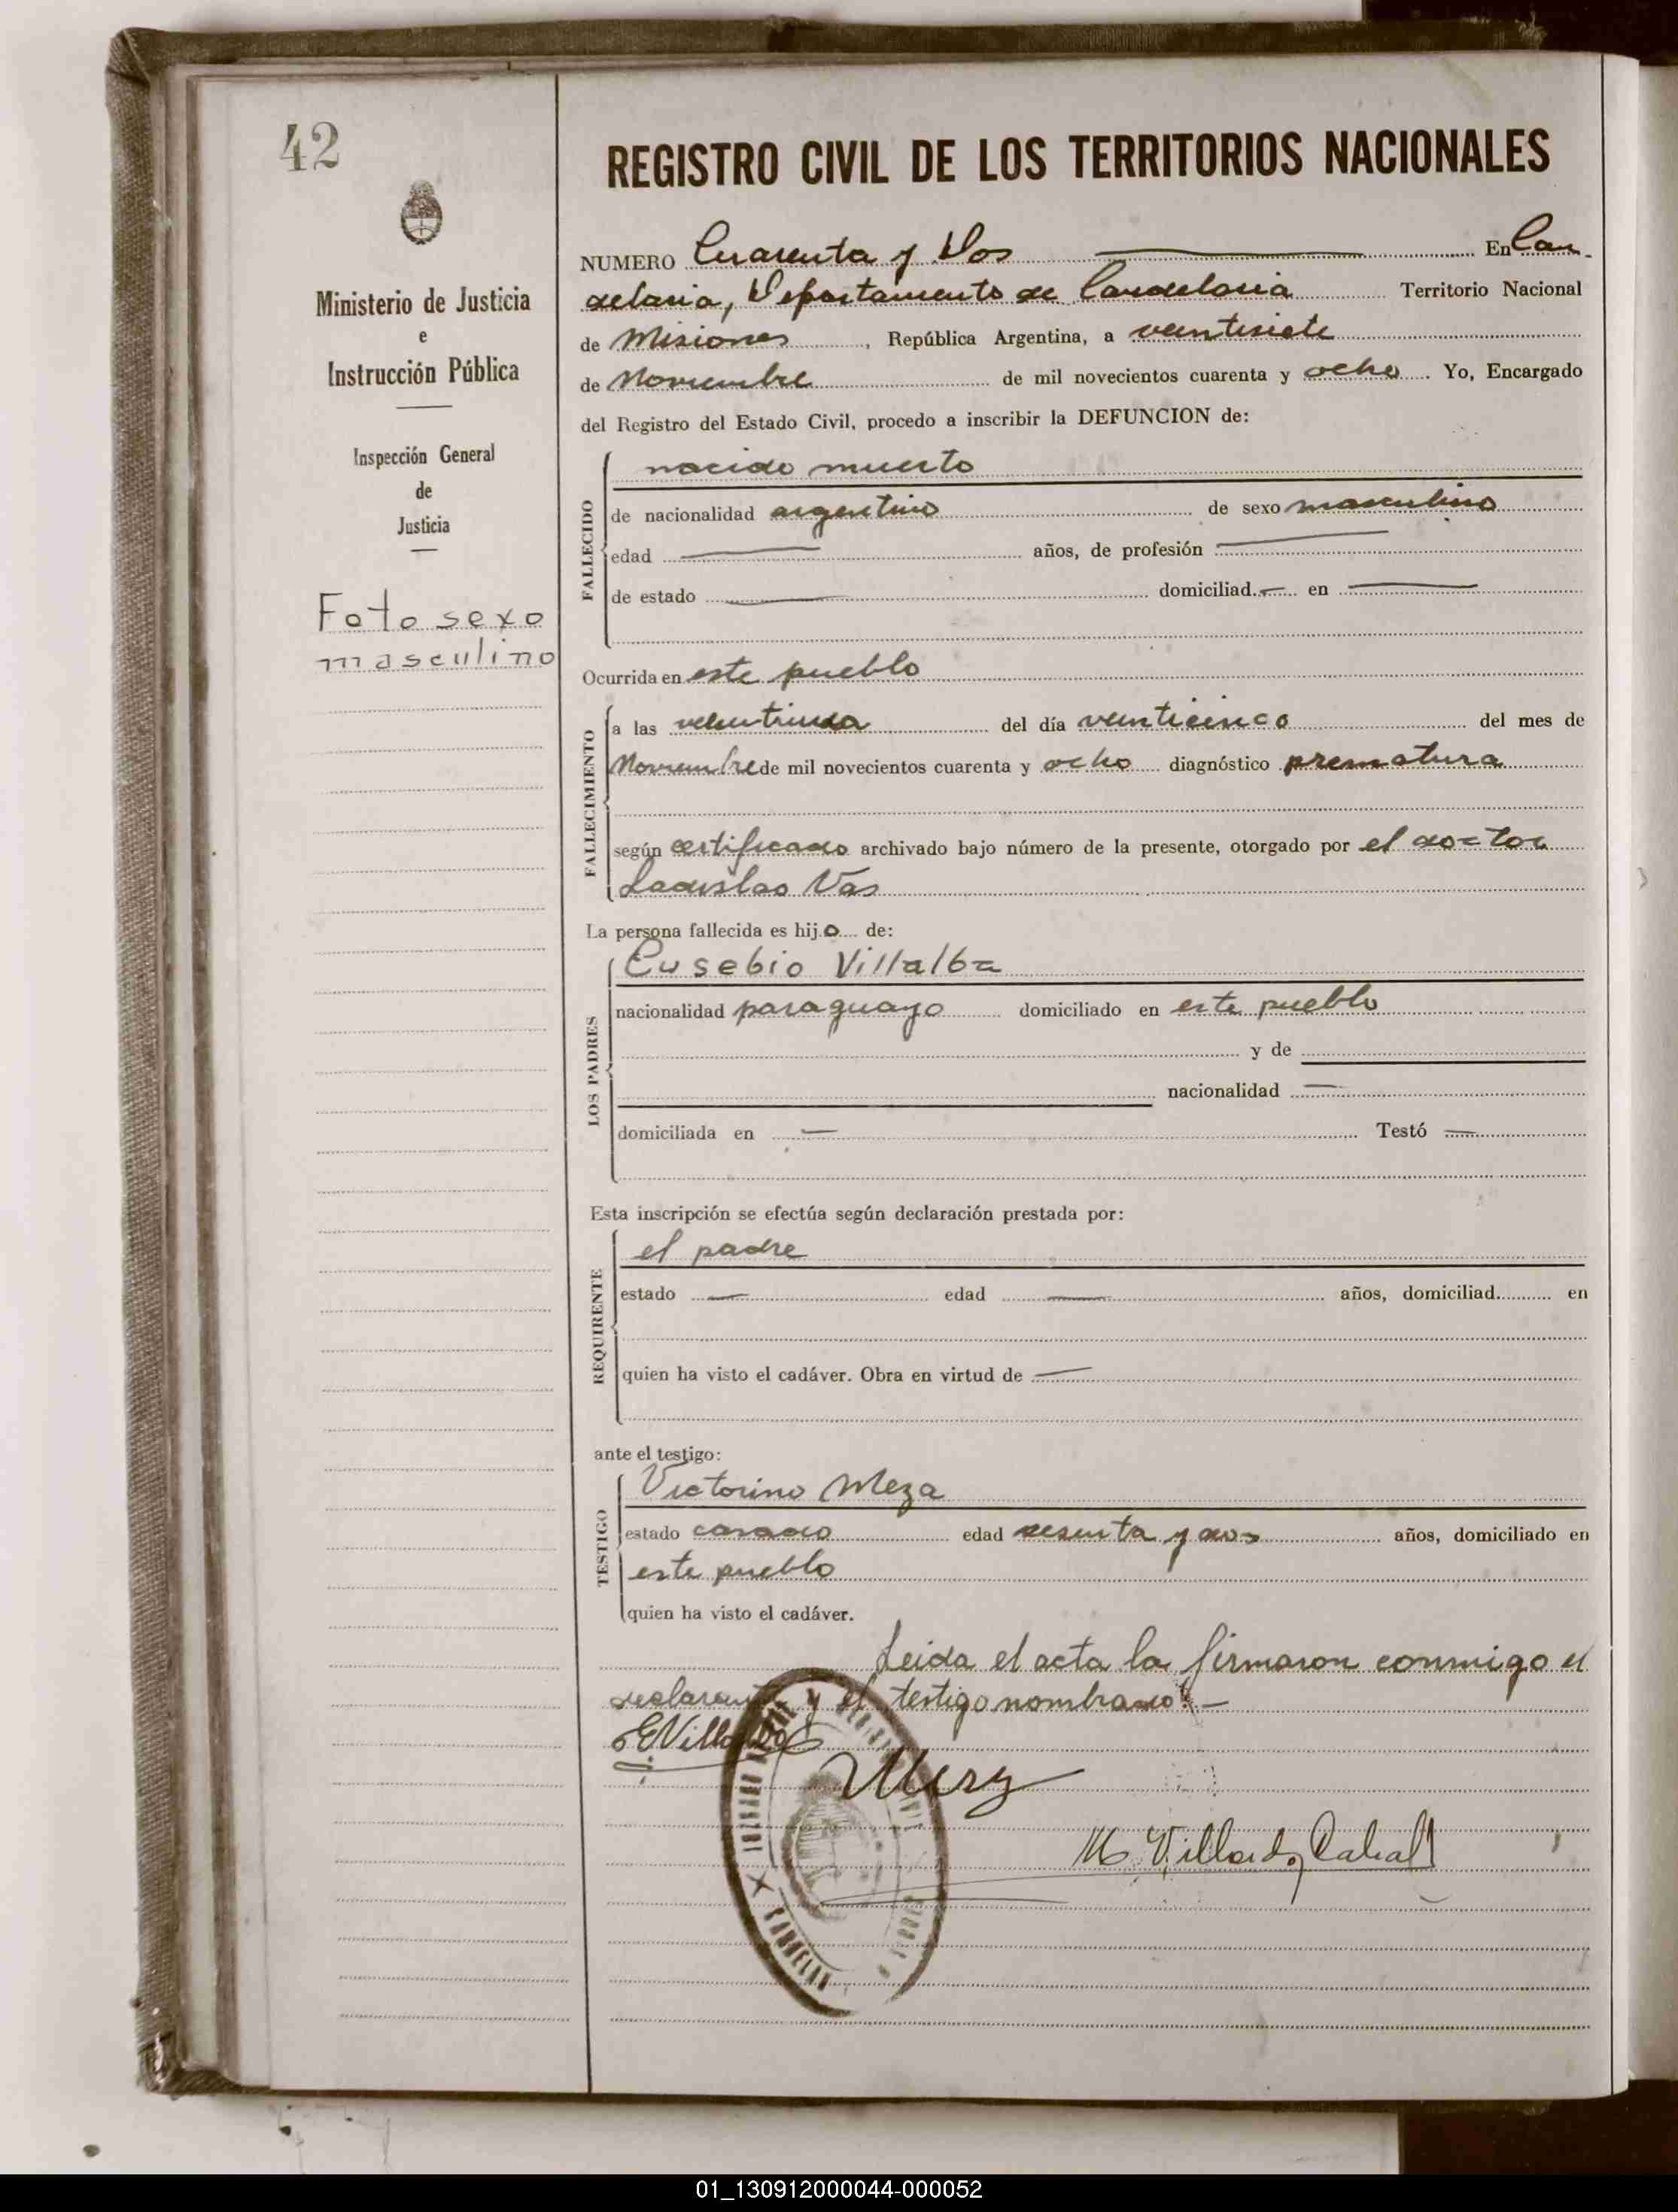 42
Ministerio de Justicia
e
Instrucción Pública
Inspección General
de
Justicia
Foto sexo
masculino
REGISTRO CIVIL DE LOS TERRITORIOS NACIONALES
NUMERO Cuarenta y Dos En Can-
delaria, Departamento de Candelaria Territorio Nacional
de Misiones, República Argentina, a veintisiete
de Noviembre de mil novecientos cuarenta y ocho. Yo, Encargado
del Registro del Estado Civil, procedo a inscribir la DEFUNCION de:
FALLECIDO
nacido muerto
de nacionalidad argentino de sexo masculino
edad años, de profesión
de estado domiciliad en
Ocurrida en este pueblo
FALLECIMIENTO
a las del día veinticinco del mes de
Noviembre de mil novecientos cuarenta y ocho diagnóstico prematura
según certificado archivado bajo número de la presente, otorgado por el doctor
Ladislao Vas
La persona fallecida es hijo de:
LOS PADRES
Eusebio Villalba
nacionalidad paraguayo domiciliado en este pueblo
y de
nacionalidad
domiciliada en Testó
Esta inscripción se efectúa según declaración prestada por:
REQUIRENTE
el padre
estado edad años, domiciliad en
quien ha visto el cadáver. Obra en virtud de
ante el testigo:
TESTIGO
Victorino Meza
estado casado edad sesenta y dos años, domiciliado en
este pueblo
quien ha visto el cadáver.
Leida el acta la firmaron conmigo el
declarante y el testigo nombrado.-
EVillalba
M. Cabral
01_130912000044-000052